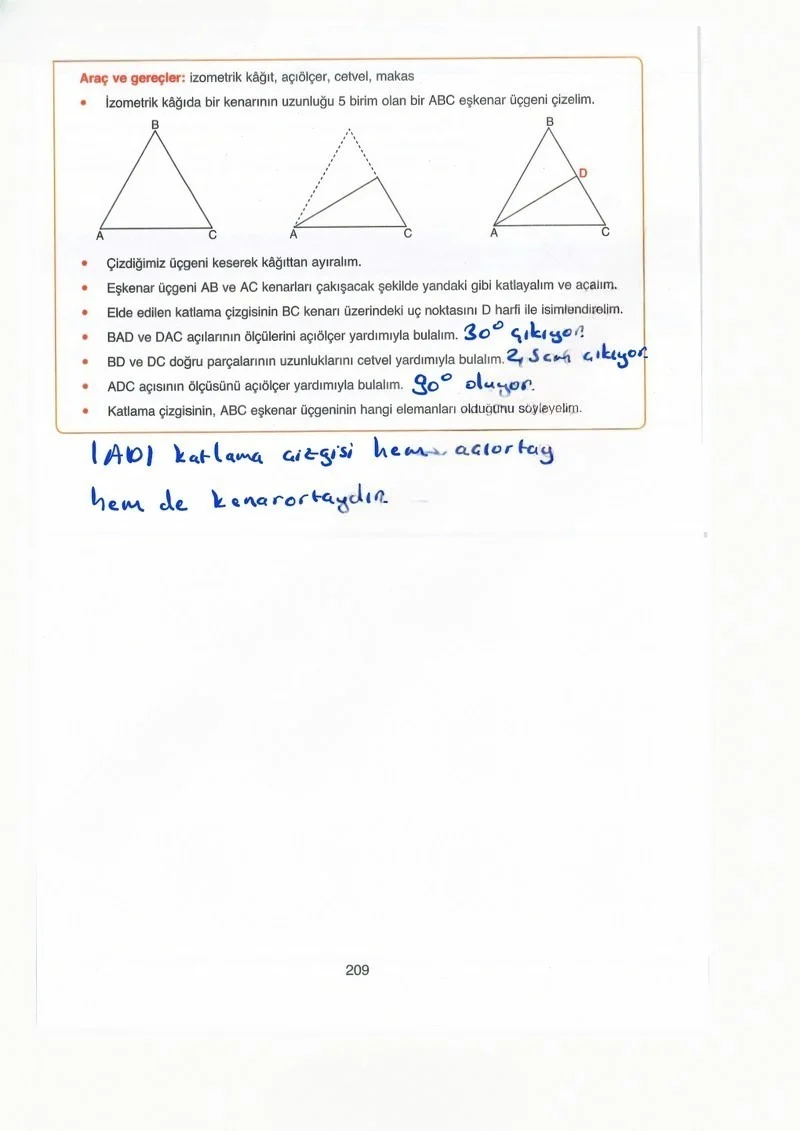 Araç ve gereçler: izometrik kâğıt, açıölçer, cetvel, makas
• İzometrik kâğıda bir kenarının uzunluğu 5 birim olan bir ABC eşkenar üçgeni çizelim.
B B
D
A C A C A C
• Çizdiğimiz üçgeni keserek kâğıttan ayıralım.
• Eşkenar üçgeni AB ve AC kenarları çakışacak şekilde yandaki gibi katlayalım ve açalım.
• Elde edilen katlama çizgisinin BC kenarı üzerindeki uç noktasını D harfi ile isimlendirelim.
• BAD ve DAC açılarının ölçülerini açıölçer yardımıyla bulalım. 30° çıkıyor.
• BD ve DC doğru parçalarının uzunluklarını cetvel yardımıyla bulalım. 2,5cm çıkıyor
• ADC açısının ölçüsünü açıölçer yardımıyla bulalım. 90° oluyor.
• Katlama çizgisinin, ABC eşkenar üçgeninin hangi elemanları olduğunu söyleyelim.
|AD| katlama çizgisi hem açıortay
hem de kenarortaydır
209